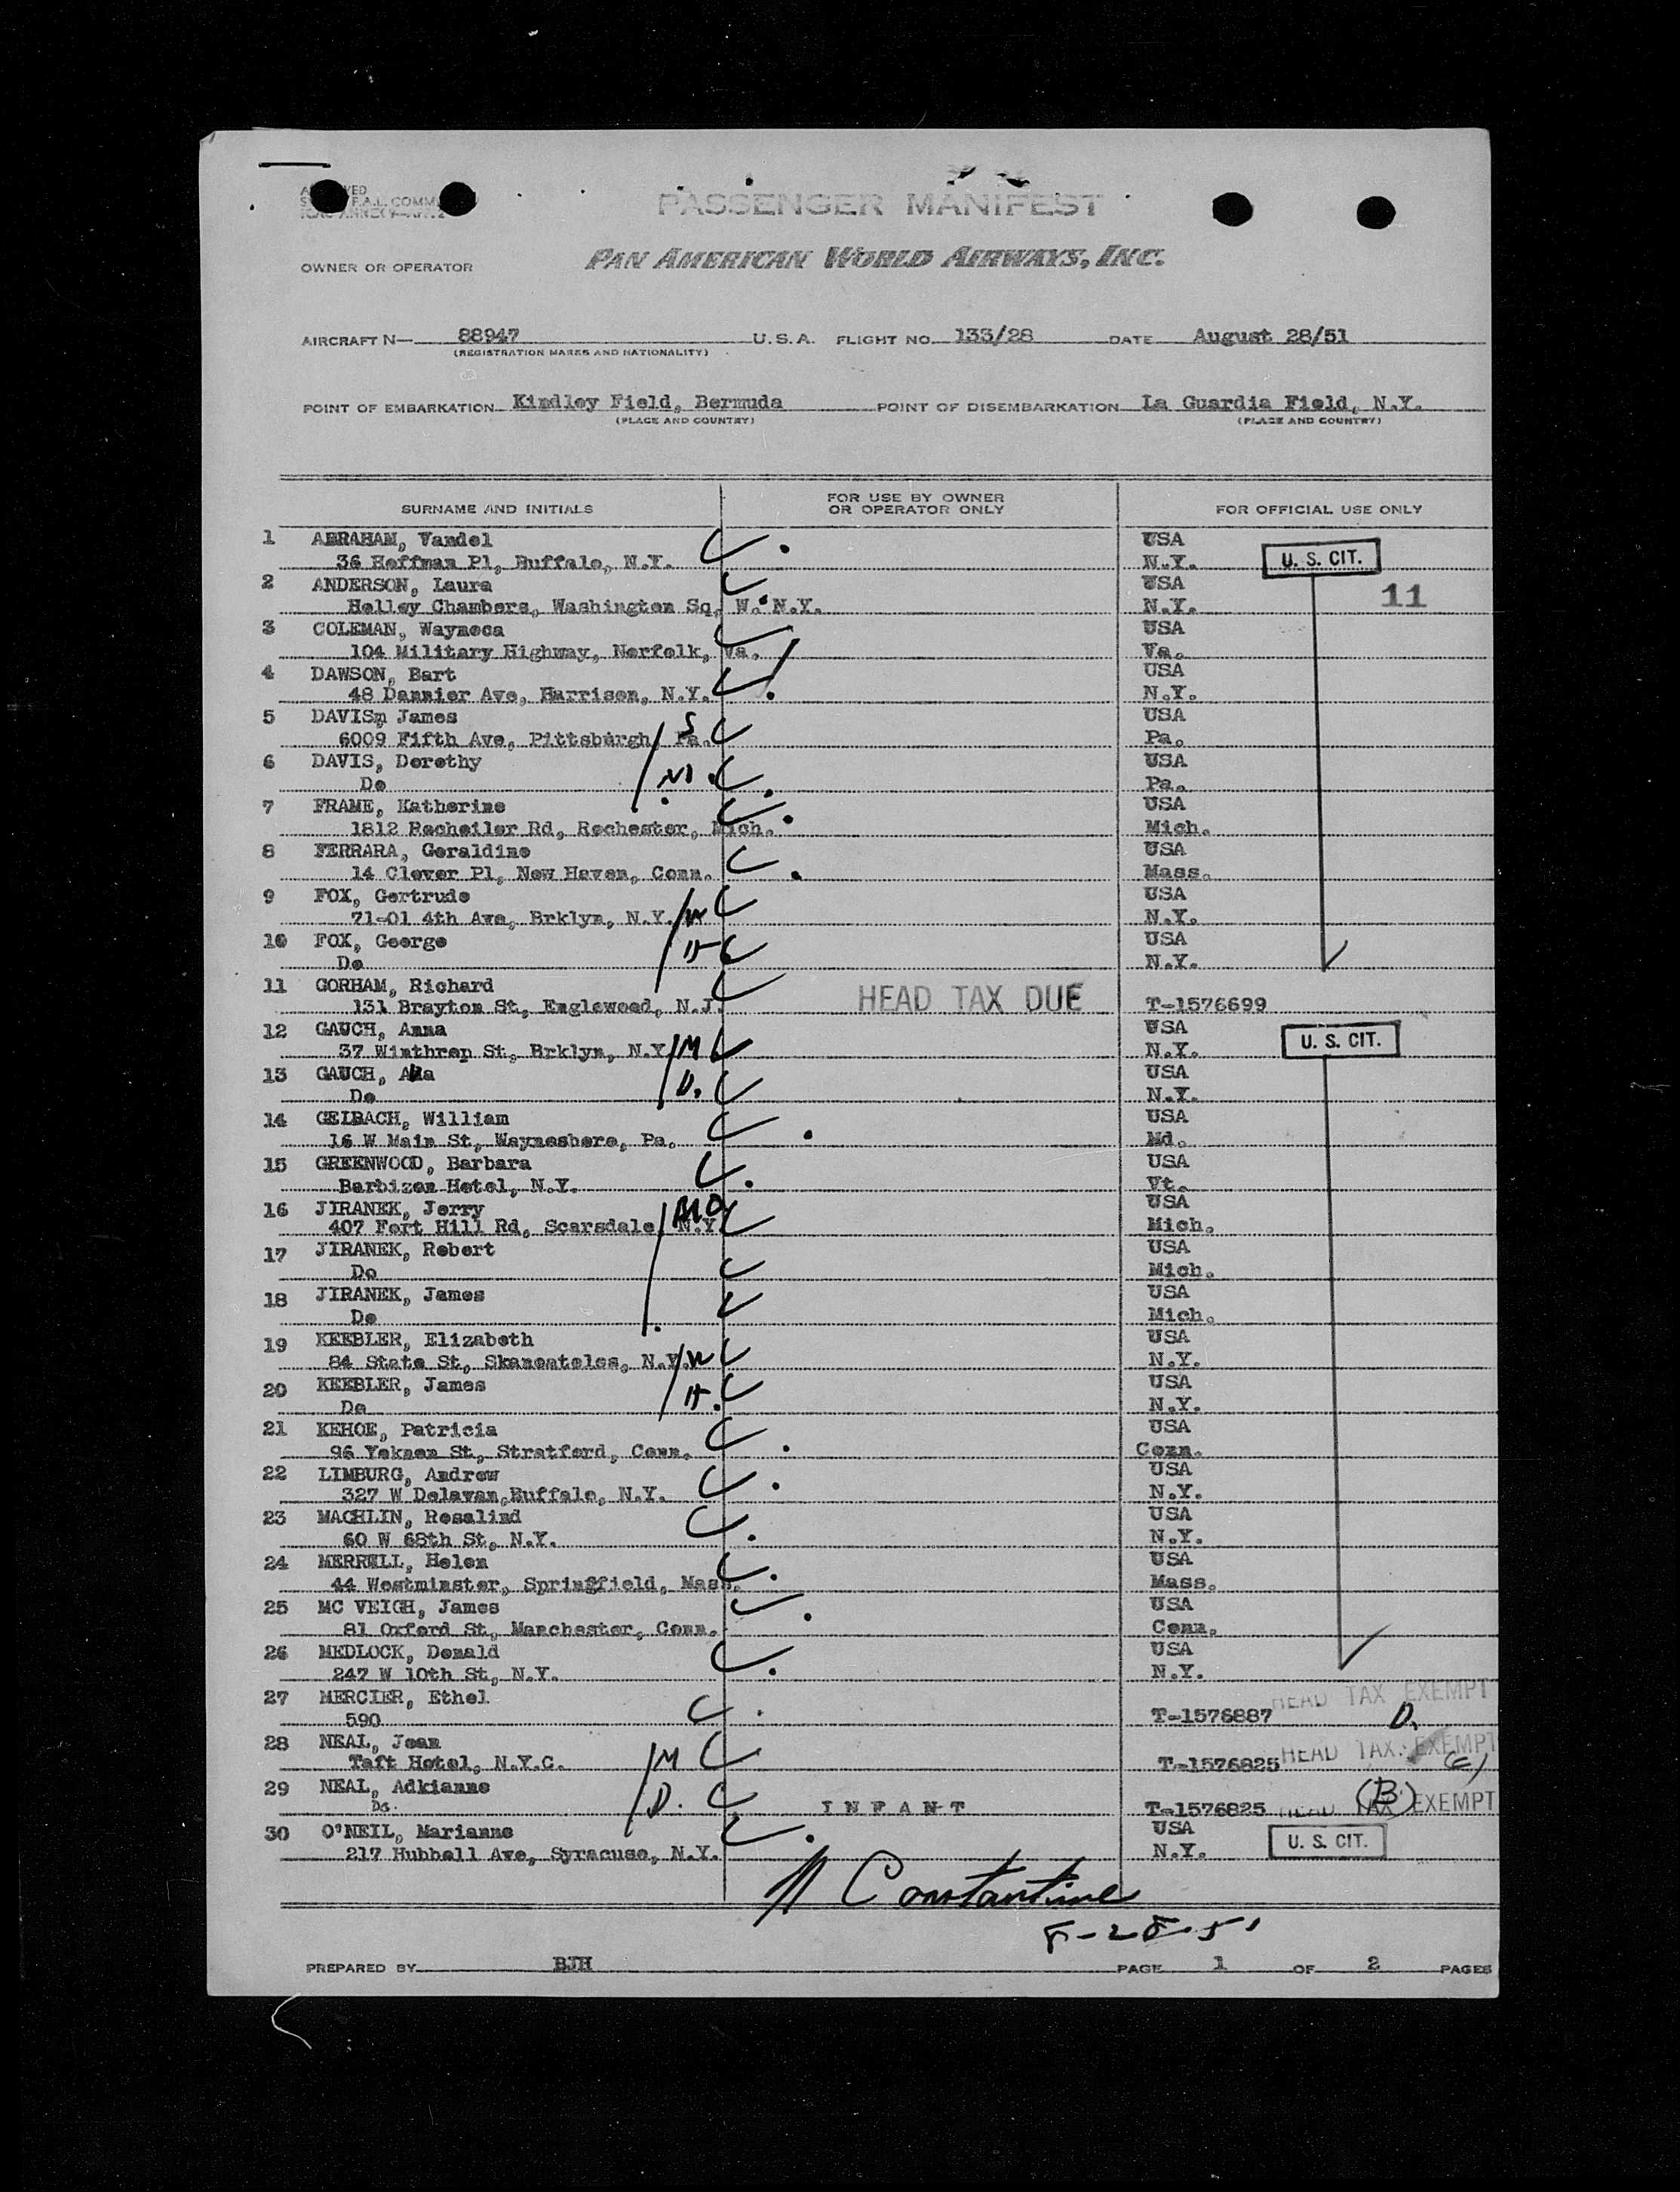 PASSENGER MANIFEST
F.A.L. COMM
OWNER OR OPERATOR PAN AMERICAN WORLD AIRWAYS, INC.
AIRCRAFT N— 88947 U.S.A. FLIGHT NO. 133/28 DATE August 28/51
(REGISTRATION MARKS AND NATIONALITY)
POINT OF EMBARKATION Kindley Field, Bermuda POINT OF DISEMBARKATION La Guardia Field, N.Y.
(PLACE AND COUNTRY) (PLACE AND COUNTRY)
SURNAME AND INITIALS FOR USE BY OWNER OR OPERATOR ONLY FOR OFFICIAL USE ONLY
1 ABRAHAM, Vandel USA
36 Hoffman Pl, Buffalo, N.Y. N.Y. U. S. CIT.
2 ANDERSON, Laura USA
Holley Chambers, Washington Sq, W. N.Y. N.Y. 11
3 COLEMAN, Wayneca USA
104 Military Highway, Norfolk, Va. Va.
4 DAWSON, Bart USA
48 Dannier Ave, Harrison, N.Y. N.Y.
5 DAVISm James USA
6009 Fifth Ave, Pittsburgh, Pa. S Pa.
6 DAVIS, Dorothy USA
Do M. Pa.
7 FRAME, Katherine USA
1812 Bacheiler Rd, Rochester, Mich. Mich.
8 FERRARA, Geraldine USA
14 Clover Pl, New Haven, Conn. Mass.
9 FOX, Gertrude USA
71-01 4th Ave, Brklyn, N.Y. W N.Y.
10 FOX, George USA
Do H N.Y.
11 GORHAM, Richard
131 Brayton St, Englewood, N.J. HEAD TAX DUE T-1576699
12 GAUCH, Anna USA
37 Winthrop St, Brklyn, N.Y. M N.Y. U. S. CIT.
13 GAUCH, Ada USA
Do D. N.Y.
14 GEIBACH, William USA
16 W Main St, Waynesboro, Pa. Md.
15 GREENWOOD, Barbara USA
Barbizon Hotel, N.Y. Vt.
16 JIRANEK, Jerry USA
407 Fort Hill Rd, Scarsdale, N.Y. Mich.
17 JIRANEK, Robert USA
Do Mich.
18 JIRANEK, James USA
Do Mich.
19 KEEBLER, Elizabeth USA
84 State St, Skaneateles, N.Y. W N.Y.
20 KEEBLER, James USA
Do H. N.Y.
21 KEHOE, Patricia USA
96 Yeknem St, Stratford, Conn. Conn.
22 LIMBURG, Andrew USA
327 W Delavan,Buffalo, N.Y. N.Y.
23 MACHLIN, Rosalind USA
60 W 68th St, N.Y. N.Y.
24 MERRELL, Helen USA
44 Westminster, Springfield, Mass. Mass.
25 MC VEIGH, James USA
81 Oxford St, Manchester, Conn. Conn.
26 MEDLOCK, Donald USA
247 W 10th St, N.Y. N.Y.
27 MERCIER, Ethel HEAD TAX EXEMPT
590 T-1576887 D.
28 NEAL, Jean HEAD TAX EXEMPT
Taft Hotel, N.Y.C. M T-1576825
29 NEAL, Adkianne (B)
Do. D. INFANT T-1576825 HEAD TAX EXEMPT
30 O'NEIL, Marianne USA
217 Hubbell Ave, Syracuse, N.Y. N.Y. U. S. CIT.
Constantine
8-28-51
PREPARED BY BJH PAGE 1 OF 2 PAGES